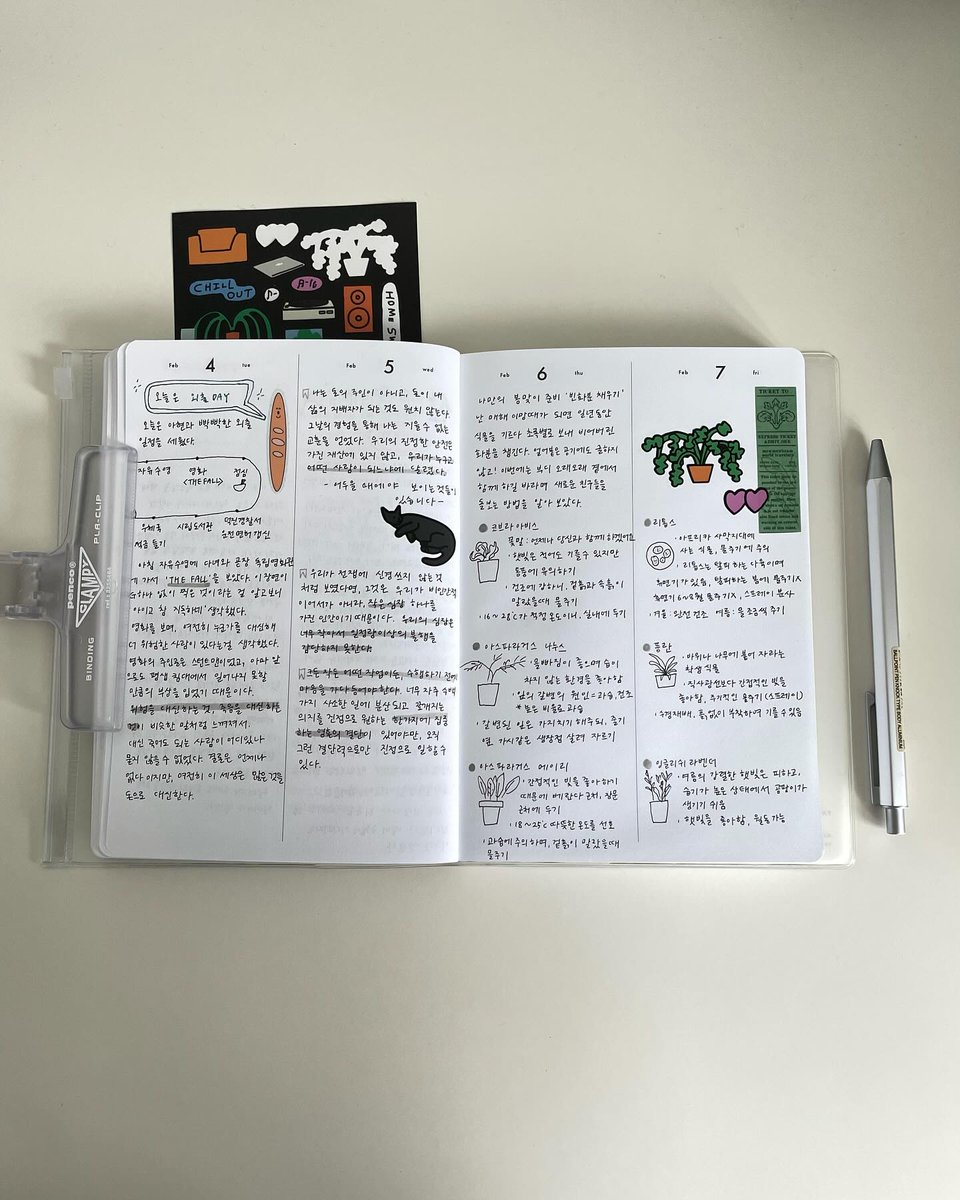 CHILL
OUT
A-16
HOME SW
penco®
PLA-CLIP
CLAMPY
BINDING
Feb 4 tue
오늘은 외출 DAY
오늘은 아현과 빡빡한 외출
일정을 세웠다.
자유수영 영화 점심
<THE FALL>
우체국 시립도서관 덕진경찰서
운전면허갱신
아침 자유수영에 다녀와 곧장 독립영화관
에 가서 'THE FALL'을 보았다. 이 장면이
아이고 참 지독하네' 생각했다.
영화를 보며, 여전히 누군가를 대신해
더 위험한 사람이 있다는걸 생각했다.
영화의 주인공는 스턴트맨이었고, 아마 앞
으로도 평생 침대에서 일어나지 못할
만큼의 부상을 입었기 때문이다.
위험을 대신하는 것, 죽음을 대신하는
것이 비슷한 일처럼 느껴져서.
대신 죽어도 되는 사람이 어디있나
묻지 않을 수 없었다. 결론은 언제나
없다 이지만, 여전히 이 세상은 많은 것을
돈으로 대신한다.
Feb 5 wed
나는 돈의 주인이 아니고, 돈이 내
삶의 지배자가 되는 것도 원치 않는다.
그날의 경험을 통해 나는 지울 수 없는
교훈을 얻었다. 우리의 진정한 안전은
가진 재산에 있지 않고, 우리가 누구고
어떤 사람이 되느냐에 달렸다.
- 여우를 대에야 보이는 것들이
있습니다 -
우리가 전쟁에 신경쓰지 않는 것
처럼 보였다면, 그것은 우리가 비인간적
이어서가 아니라, 작은 심장 하나를
가진 인간이기 때문이다. 우리의 심장은
너무 작아서 일정량 이상의 불행을
감당하지 못한다.
크든 작든 어떤 작업이든, 수행하기 전에
마음을 가다듬어야 한다. 너무 자주 수백
가지 사소한 일에 분산되고 쪼개지는
의지를 진정으로 원하는 한가지에 집중
하는 영혼의 결단이 있어야만, 오직
그런 결단력으로만 진정으로 일할 수
있다.
Feb 6 thu
나만의 봄맞이 준비 '빈화분 채우기'
난 매해 이맘때가 되면 일년동안
식물을 기르다 초록별로 보내 비어버린
화분을 챙긴다. 얼어붙은 공기에도 굴하지
않고! 이번에는 부디 오래오래 곁에서
함께 하길 바라며 새로운 친구들을
돌보는 방법을 알아 보았다.
코브라 아비스
꽃말 : 언제나 당신과 함께 하겠어요
· 햇빛은 적어도 기를 수 있지만
통풍에 유의하기
· 건조에 강하니, 겉흙과 속흙이
말랐을때 물주기
· 16~28°C가 적정 온도이니, 실내에 두기
아스파라거스 나누스
· 올바임이 좋으며 습이
차지 않는 환경을 좋아함
· 잎의 갈변의 원인 = 과습, 건조
* 높은 비율로 과습
갈변된 잎은 가지치기 해주되, 줄기
옆 가시같은 생장점 살려 자르기
아스파라거스 메이리
· 간접적인 빛을 좋아하기
때문에 베란다 근처, 창문
근처에 두기
· 18~25°C 따뜻한 온도를 선호
· 과습에 주의하며, 겉흙이 말랐을때
물주기
Feb 7 fri
TICKET TO
EXPRESS TICKET
리톱스
· 아프리카 사막지대에
사는 식물, 물주기에 주의
· 리톱스는 탈피 하는 다육이며
휴면기가 있음, 탈피하는 봄에 물주기X
휴면기 6~8월 물주기X, 스프레이 분사
겨울 : 완전건조 여름 : 물 조금씩 주기
풍란
· 바위나 나무에 붙어 자라는
착생식물
· 직사광선보다 간접적인 빛을
좋아함, 주기적인 물주기 (스프레이)
· 수경재배, 흙 없이 부착하여 기를 수 있음
잉글리쉬 라벤더
· 여름의 강렬한 햇빛은 피하고,
습기가 높은 상태에서 곰팡이가
생기기 쉬움
· 햇빛을 좋아함, 월동가능